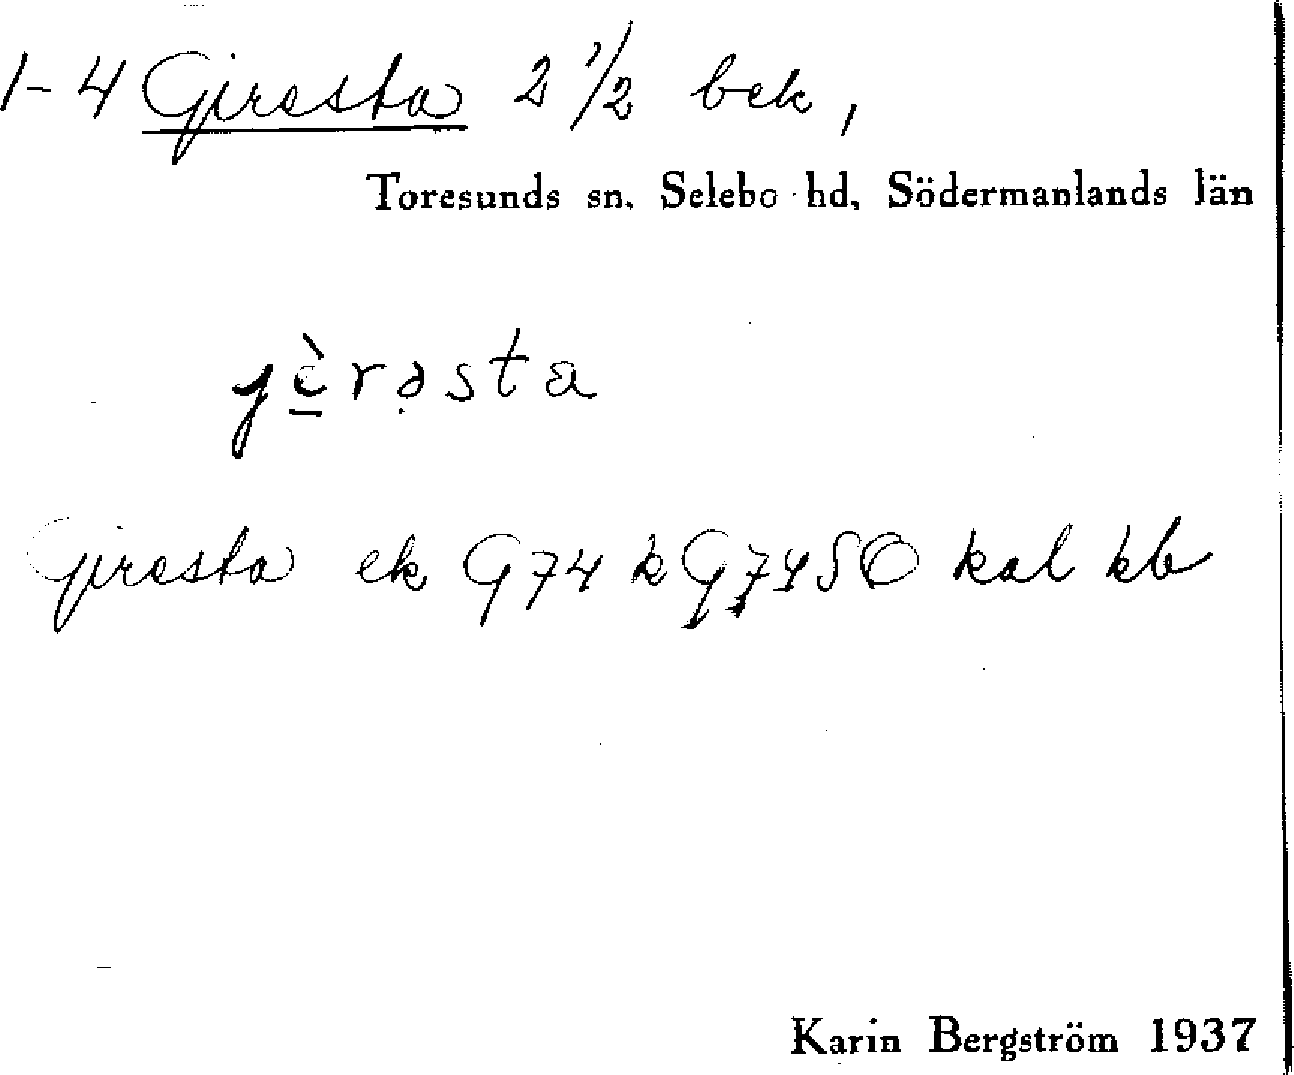 1-4 Giresta 2 1/2 bek,
Toresunds sn. Selebo hd, Södermanlands län
jè̱rəsta
Giresta ek G74 k G74SO kal kb
Karin Bergström 1937